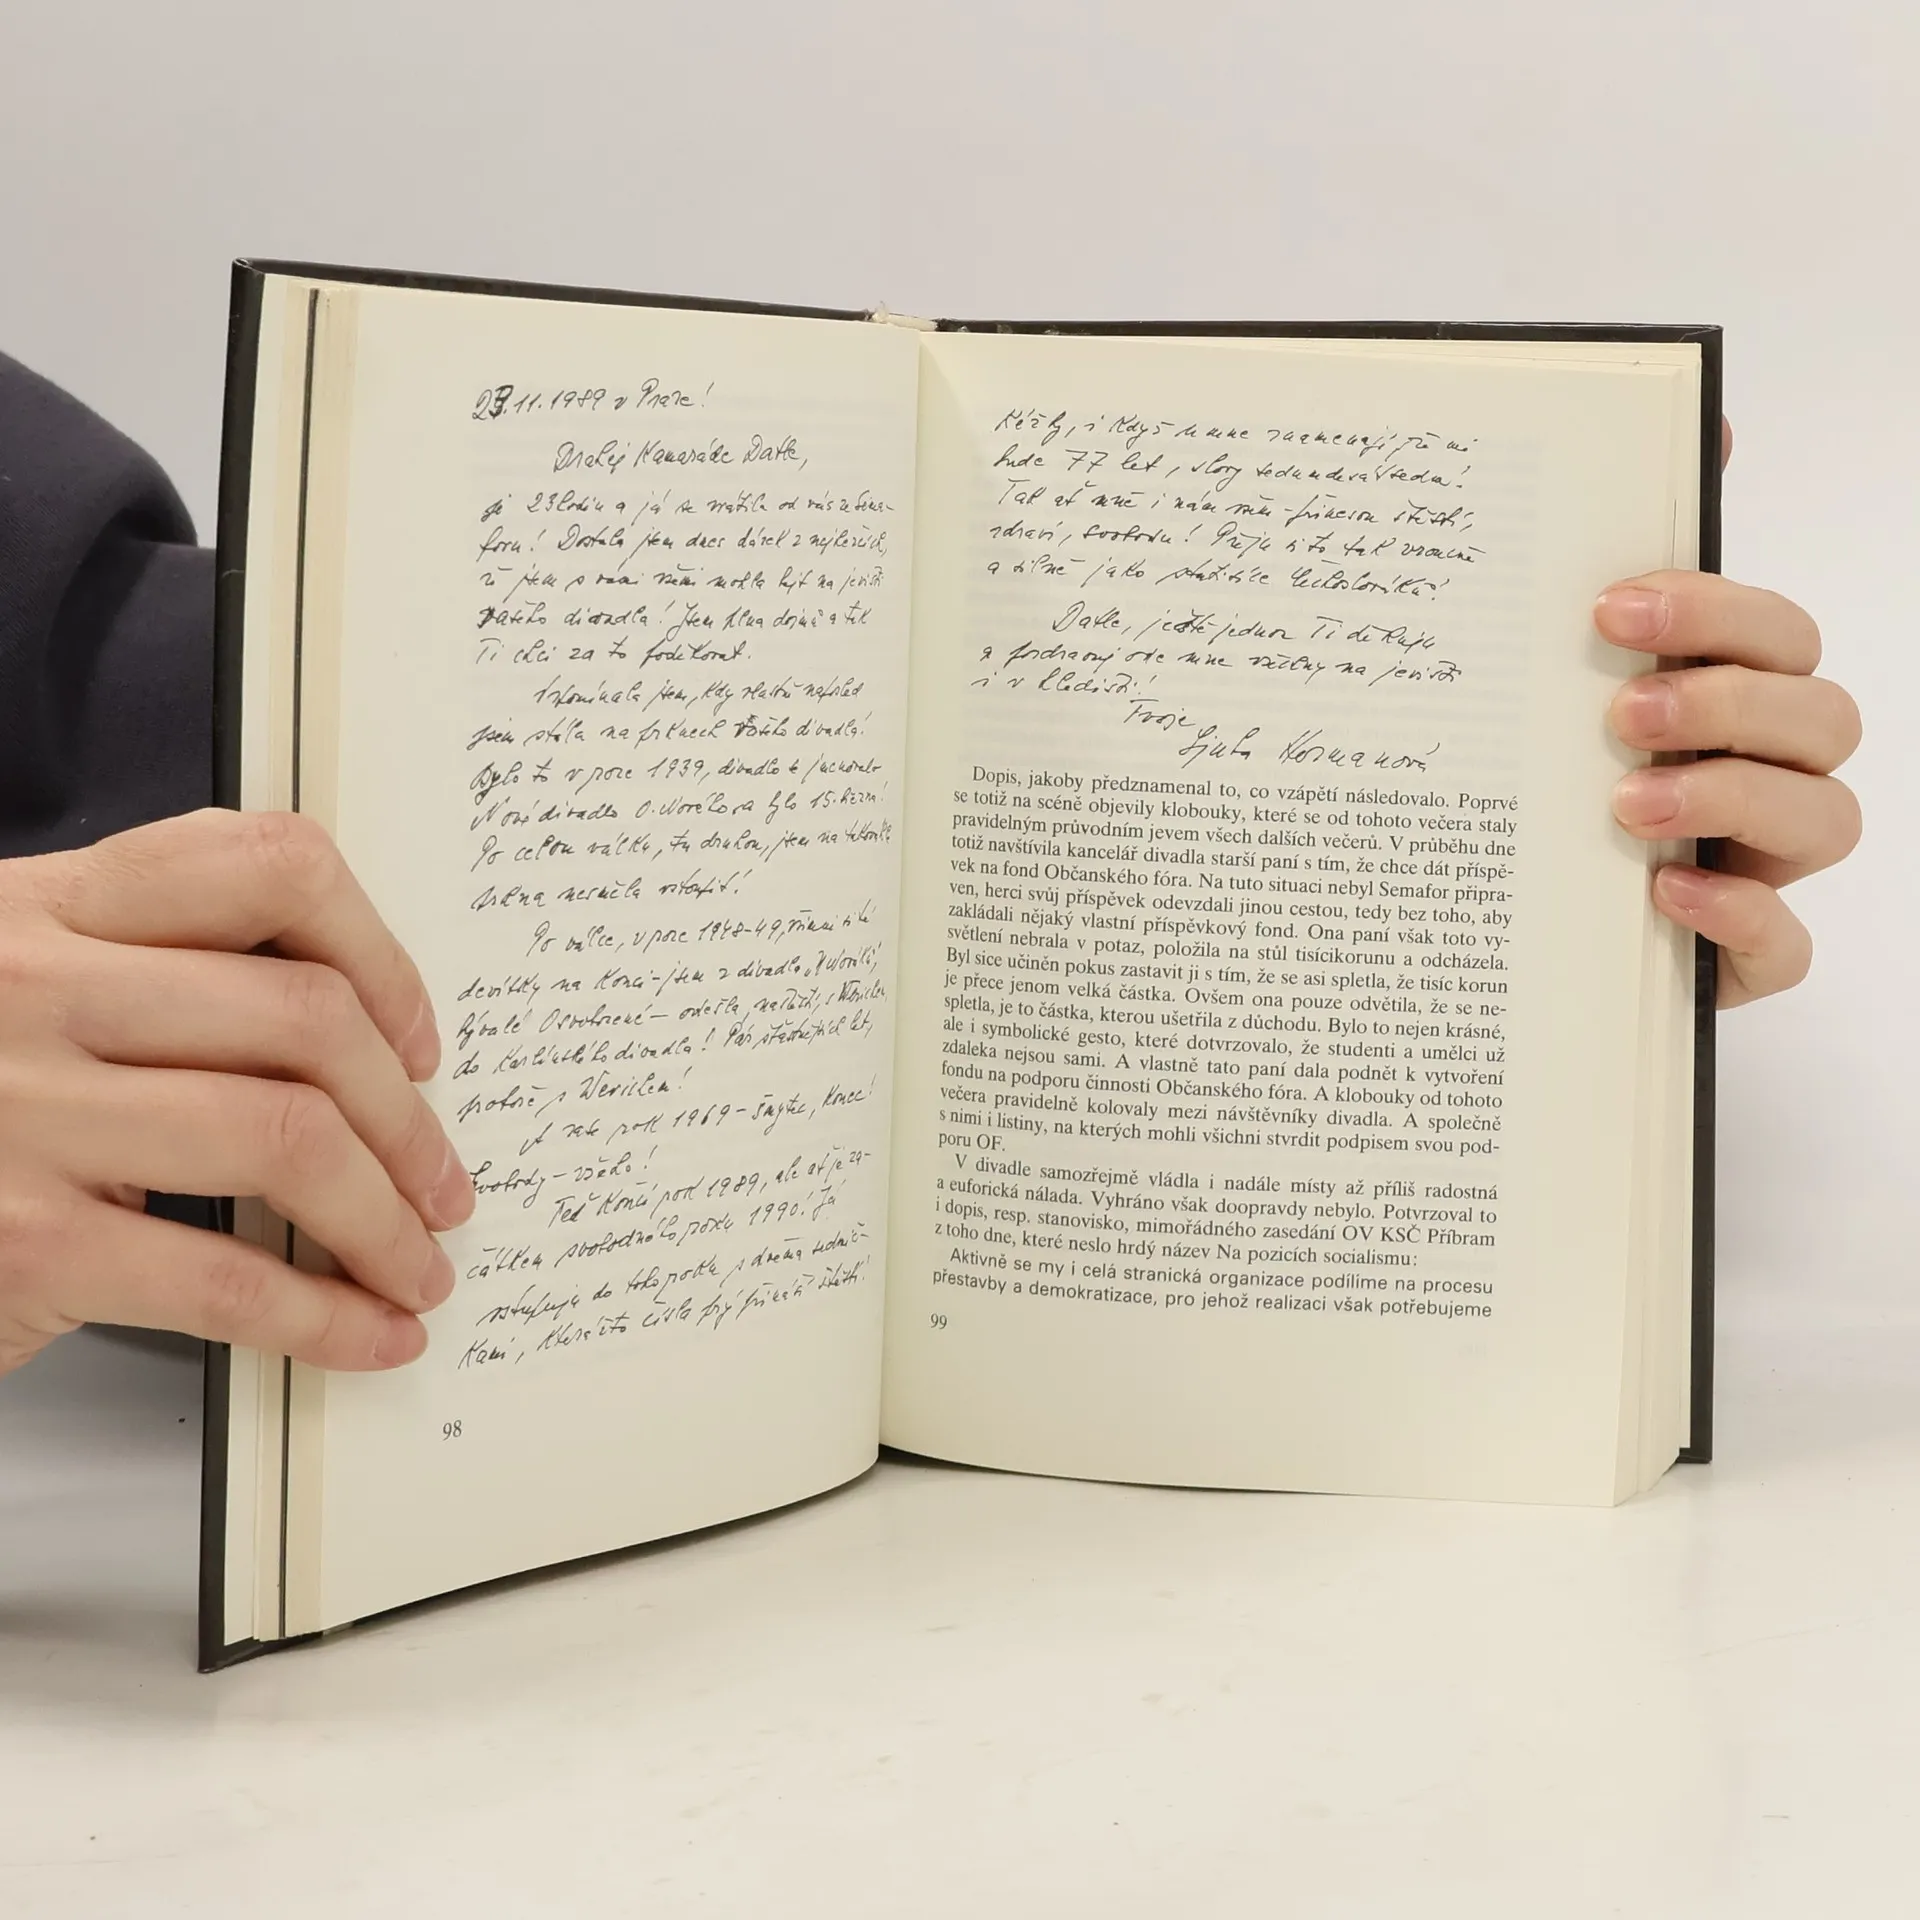 23.11.1989 v Praze!
Drahý Kamaráde Datle,
je 23 hodin a já se vrátila od vás ze Sema-
foru! Dostala jsem dnes dárek z nejhezčích,
že jsem s vámi všemi mohla být na jevišti
vašeho divadla! Jsem plna dojmů a tak
Ti chci za to poděkovat.
Vzpomínala jsem, kdy vlastně naposled
jsem stála na prknech vašeho divadla!
Bylo to v roce 1939, divadlo se jmenovalo
Nové divadlo O. Nového a bylo 15. března!
Po celou válku, tu druhou, jsem na taková
prkna nesměla vstoupit!
Po válce, v roce 1948-49, všimni si té
devítky na konci - jsem z divadla „U Nováků",
bývalé Osvobozené - odešla, naštěstí, s Werichem,
do Karlínského divadla! Pár šťastnějších let,
protože s Werichem!
A zase rok 1969 - šmytec, konec!
Svobody - všeho!
Teď končí rok 1989, ale ať je za-
čátkem svobodného roku 1990! Já
vstupuju do toho roku s dvěma sedmič-
kami, kterážto čísla prý přináší štěstí!
98
Kéžby, i když u mne znamenají, že mi
bude 77 let, slovy sedmdesátsedm!
Tak ať mně i nám všem přinesou štěstí,
zdraví, svobodu! Přeju si to tak vroucně
a silně jako statisíce Čechoslováků!
Datle, ještě jednou Ti děkuju
a pozdravuj ode mne všechny na jevišti
i v hledišti!
Tvoje
Ljuba Hermanová
Dopis, jakoby předznamenal to, co vzápětí následovalo. Poprvé
se totiž na scéně objevily klobouky, které se od tohoto večera staly
pravidelným průvodním jevem všech dalších večerů. V průběhu dne
totiž navštívila kancelář divadla starší paní s tím, že chce dát příspě-
vek na fond Občanského fóra. Na tuto situaci nebyl Semafor připra-
ven, herci svůj příspěvek odevzdali jinou cestou, tedy bez toho, aby
zakládali nějaký vlastní příspěvkový fond. Ona paní však toto vy-
světlení nebrala v potaz, položila na stůl tisícikorunu a odcházela.
Byl sice učiněn pokus zastavit ji s tím, že se asi spletla, že tisíc korun
je přece jenom velká částka. Ovšem ona pouze odvětila, že se ne-
spletla, je to částka, kterou ušetřila z důchodu. Bylo to nejen krásné,
ale i symbolické gesto, které dotvrzovalo, že studenti a umělci už
zdaleka nejsou sami. A vlastně tato paní dala podnět k vytvoření
fondu na podporu činnosti Občanského fóra. A klobouky od tohoto
večera pravidelně kolovaly mezi návštěvníky divadla. A společně
s nimi i listiny, na kterých mohli všichni stvrdit podpisem svou pod-
poru OF.
V divadle samozřejmě vládla i nadále místy až příliš radostná
a euforická nálada. Vyhráno však doopravdy nebylo. Potvrzoval to
i dopis, resp. stanovisko, mimořádného zasedání OV KSČ Příbram
z toho dne, které neslo hrdý název Na pozicích socialismu:
Aktivně se my i celá stranická organizace podílíme na procesu
přestavby a demokratizace, pro jehož realizaci však potřebujeme
99